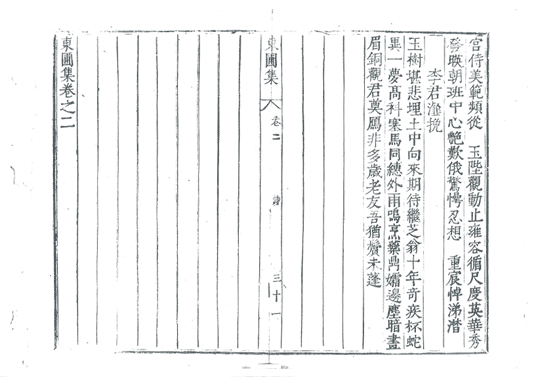 宮侍美範類從 玉陛觀動止雍容循尺度英華秀
發暎朝班中心艶歎俄驚愕忍想 重宸悼涕潸
李君瀅挽
玉樹堪悲埋土中向來期待繼芝翁十年奇疾杯蛇
異一夢高科塞馬同總外雨鳴烹藥鼎孀邊塵暗畫
眉銅觀君奠鴈非多歲老友吾猶鬢未蓬
東圃集
卷二
三十一
東圃集卷之二